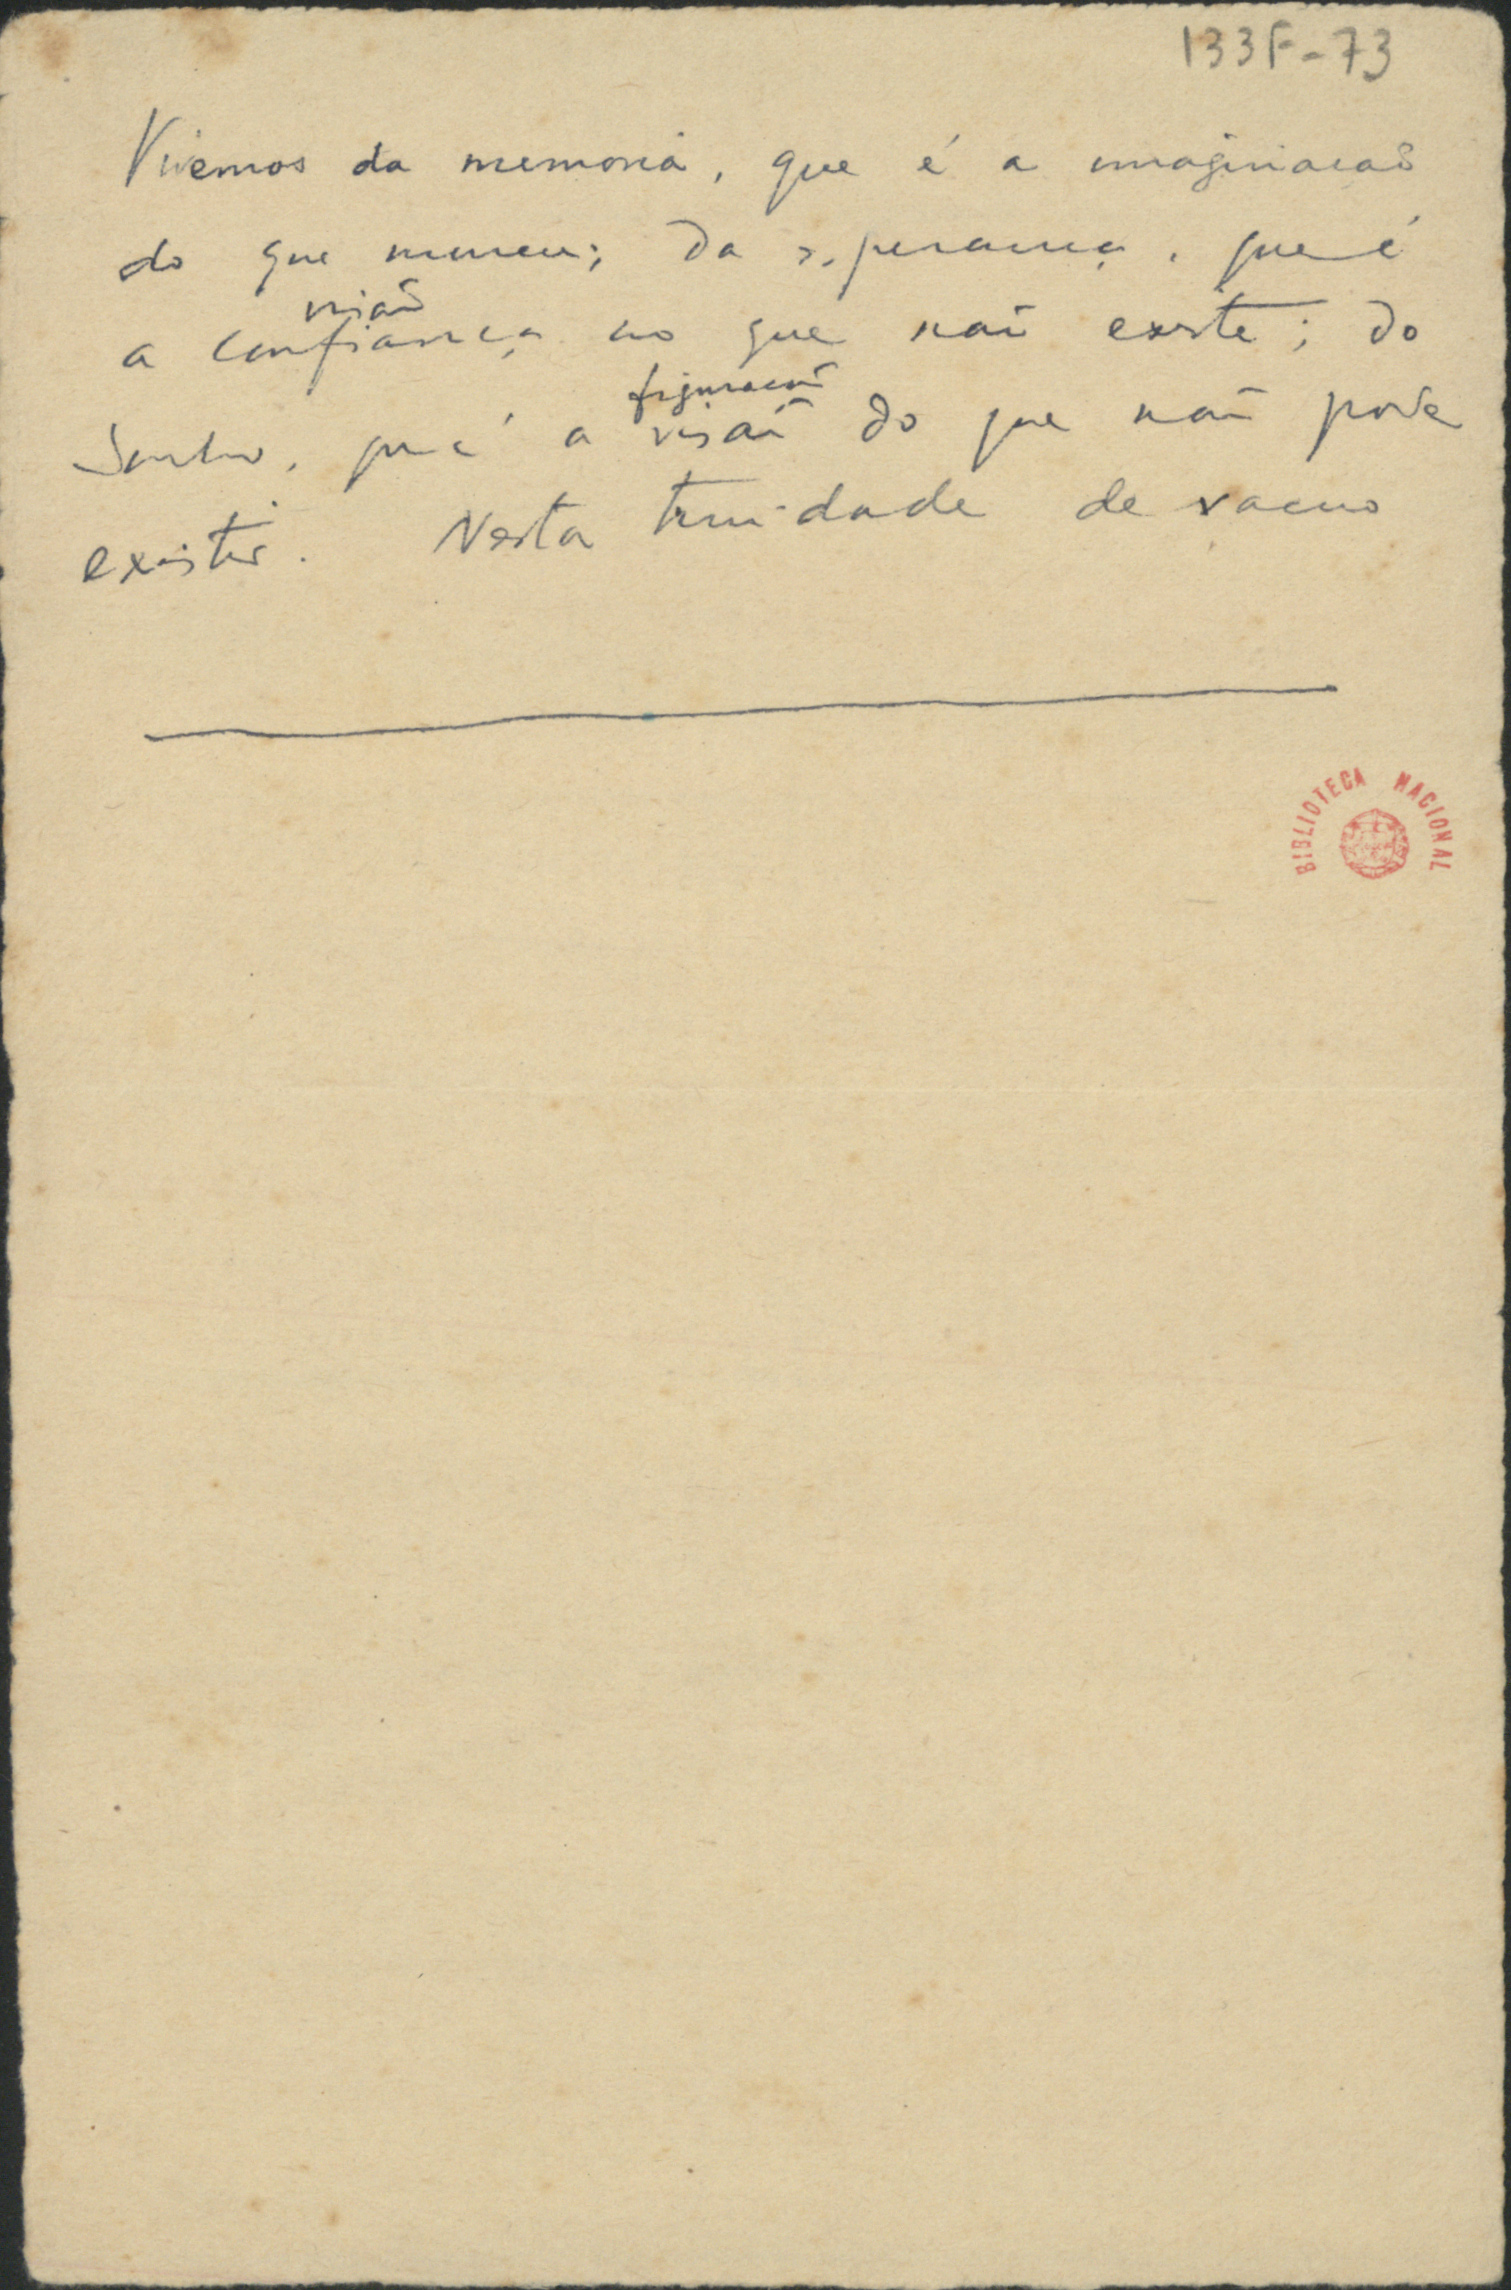 133F-73
Vivemos da memoria, que é a imaginação
do que morreu; da esperança, que é
visão
a confiança no que não existe; do
figuração
sonho, que é a visão do que não pode
existir. Nesta trindade de vacuo
BIBLIOTECA NACIONAL